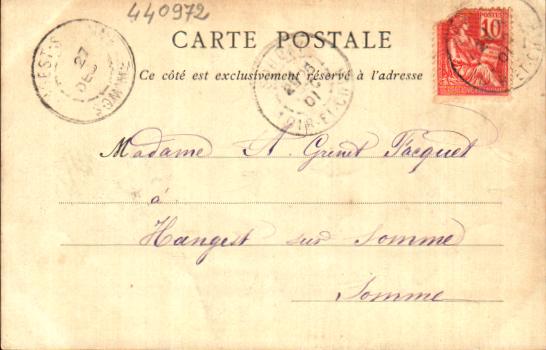 440972
CARTE POSTALE
Ce côté est exclusivement réservé à l'adresse
POSTES
10
27
DEC
SOMME
01
LOIR-ET-CHER
Madame A. Grinet Facquet
à
Hangest sur Somme
Somme